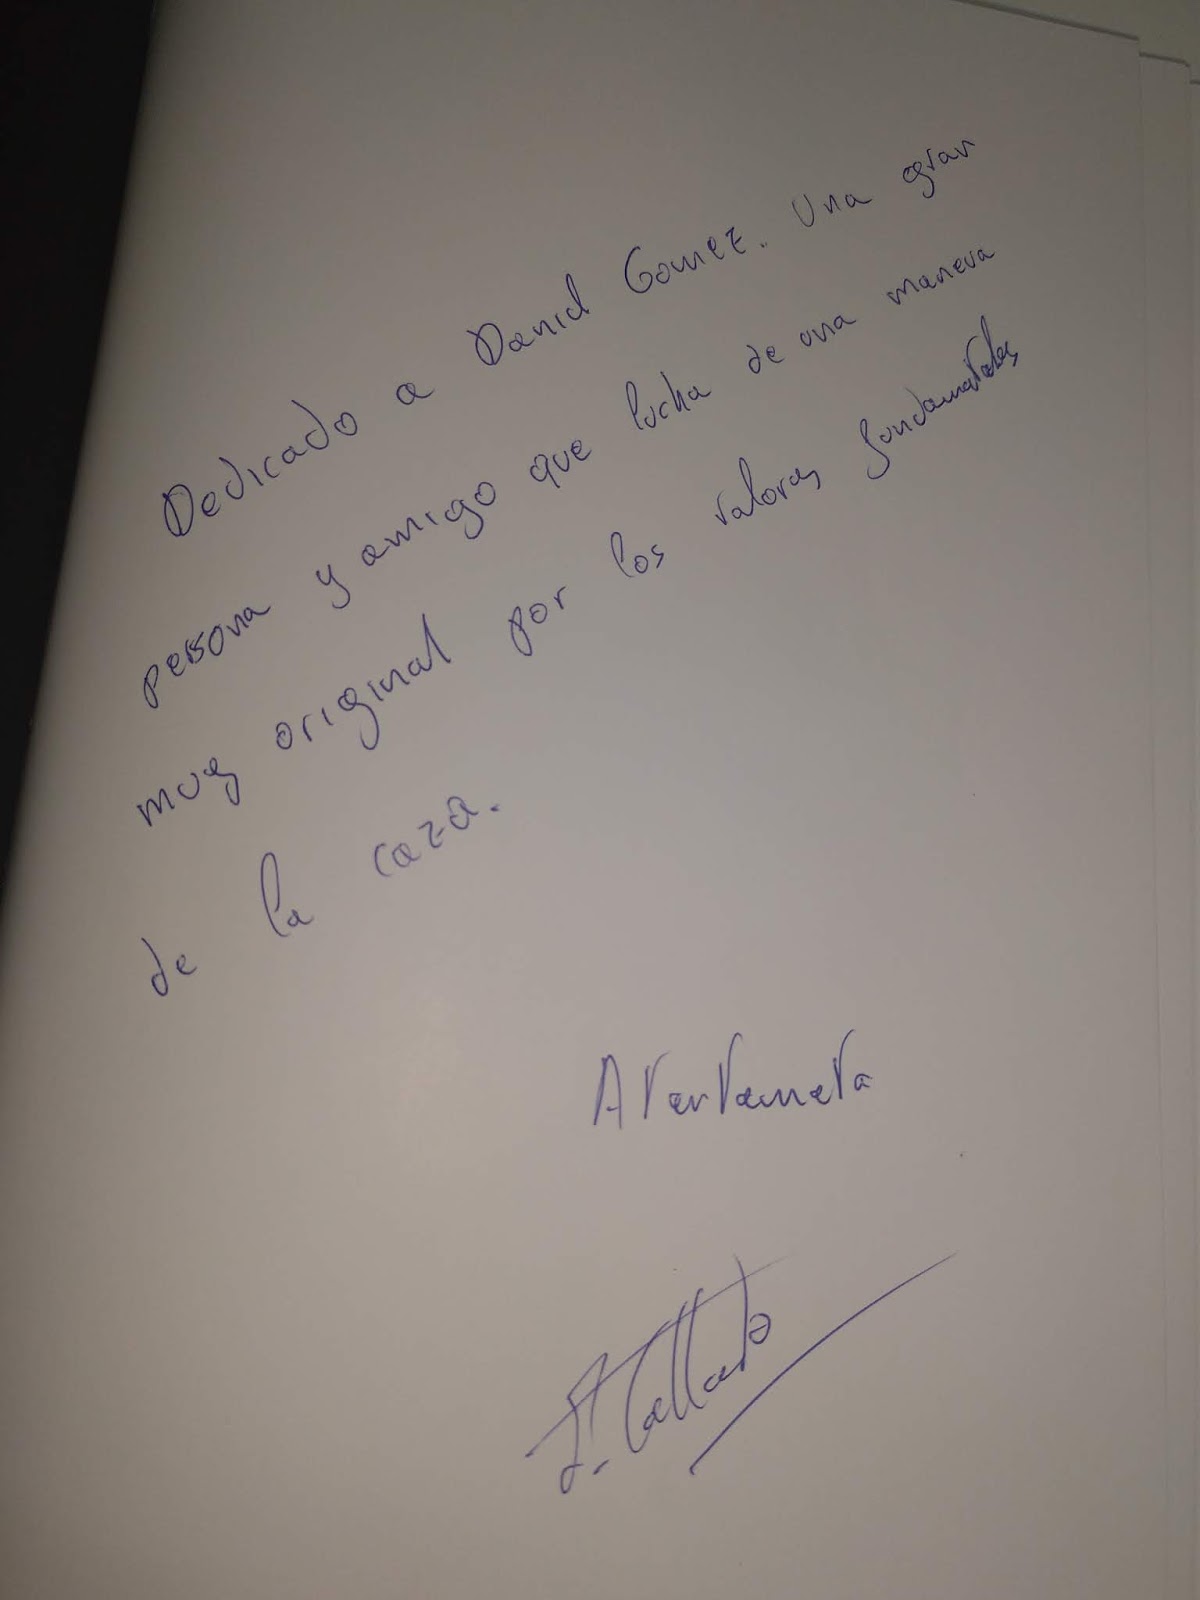 Dedicado a Daniel Gomez. Una gran
persona y amigo que lucha de una manera
muy original por los valores fundamentales
de la caza.
Atentamente